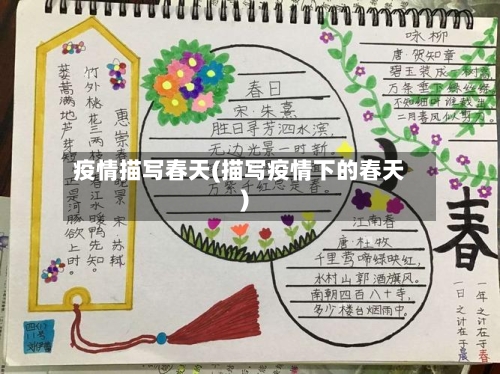 惠崇春江晚景 宋 苏轼
竹外桃花三两枝,春江水暖鸭先知。
蒌蒿满地芦芽短,正是河豚欲上时。
春日
宋·朱熹
胜日寻芳泗水滨,
无边光景一时新。
万紫千红总是春。
疫情描写春天(描写疫情下的春天
)
咏柳
唐·贺知章
碧玉装成一树高
万条垂下绿丝绦
不知细叶谁裁出
二月春风似剪刀。
江南春
唐·杜牧
千里莺啼绿映红,
水村山郭酒旗风。
南朝四百八十寺,
多少楼台烟雨中。
春
一年之计在于春
一日之计在于晨